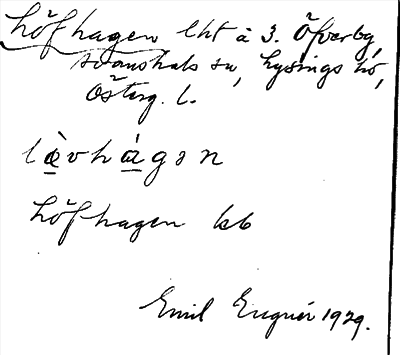 Löfhagen lht å 3. Öfverby,
Svanshals sn, Lysings hd,
Österg. l.
lòvhàgən
Löfhagen kb
Emil Eugnér 1929.